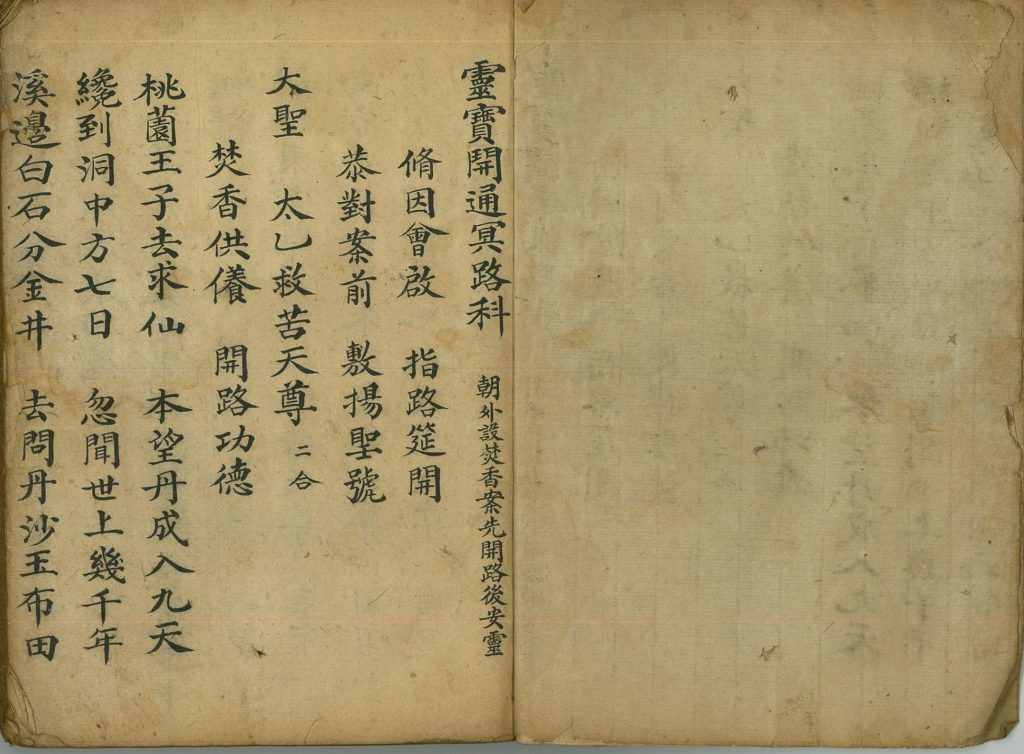 靈寶開通冥路科 朝外設焚香案先開路後安靈
脩因會啟 指路筵開
恭對案前 敷揚聖號
大聖 太乙救苦天尊 二合
焚香供養 開路功德
桃薗王子去求仙 本望丹成入九天
纔到洞中方七日 忽聞世上幾千年
溪邊白石分金井 去問丹沙玉布田